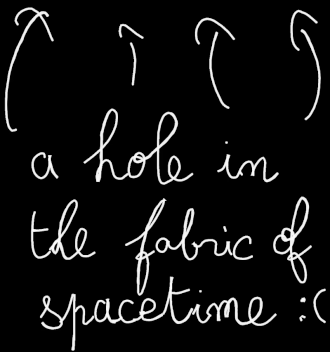 a hole in
the fabric of
spacetime :(